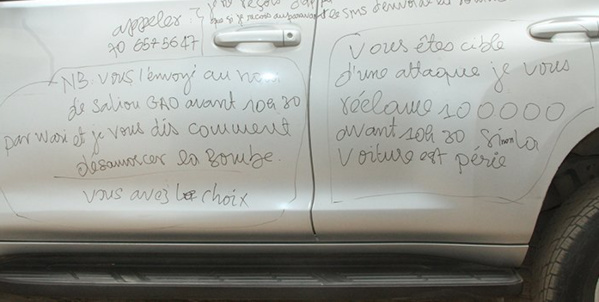 appeler :
70 6575647
NB. Vous l'envoyi au nom
de Saliou GAO avant 10h30
par Wari et je vous dis comment
desamorcer la Bombe.
vous avez le choix
Vous êtes cible
d'une attaque je vous
réclame 100000
avant 10h30 Sinon la
voiture est périe